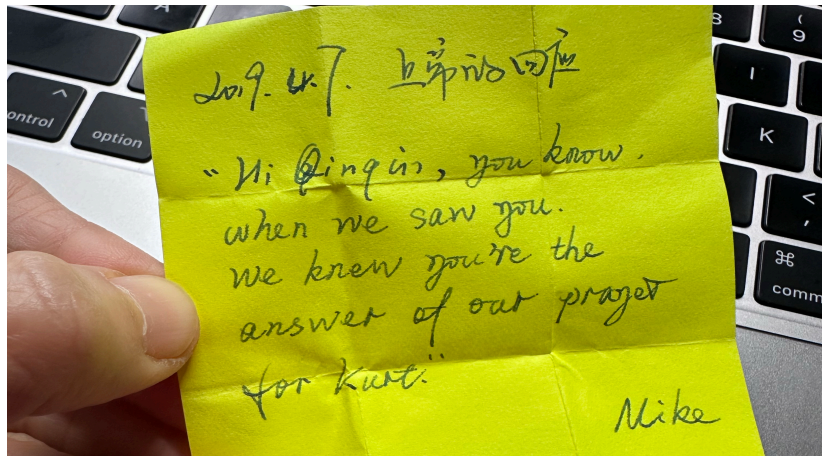 2019.4.7. 上帝的回应
"Hi Qingin, you know.
when we saw you.
we knew you're the
answer of our prayer
for Kurt."
Mike
control
option
8
(
9
I
K
<
,
⌘
comm